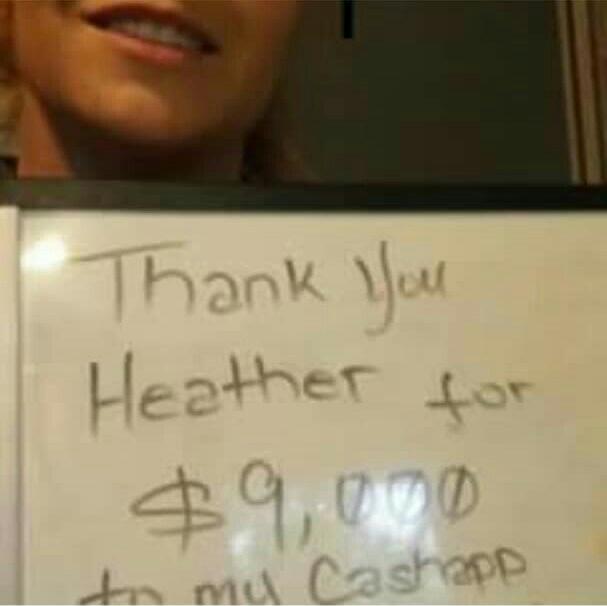 Thank You
Heather for
$9,000
to my Cashapp